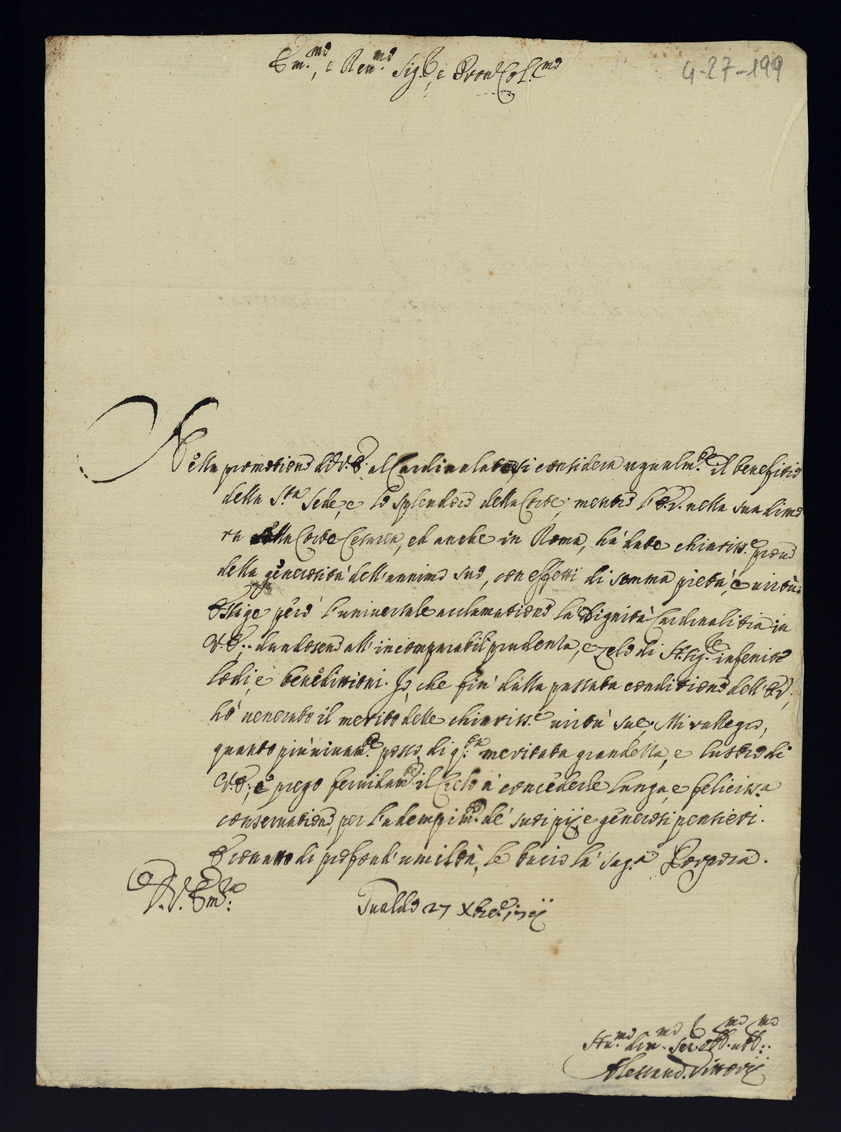 Em.mo, e Ren.mo Sig.r, e Pron Col.mo
4-27-199
Nella promotione di V.E. al Cardinalato si considera ugualm.te il benefitio
della S.ta Sede, e lo splendore della Corte; mentre l'E.V. nella sua dimo
ra alla Corte Cesarea, ed anche in Roma, hà date chiariss.e prove
della generosità dell'animo suo, con effetti di somma pietà, e virtù.
Esige però l'universale acclamatione la dignità Cardinalitia in
V.E.: dandosene all'incomparabil prudenza, e zelo di N. Sig.re infenite
lodi, e beneditioni. Io, che fin' dalla passata conditione dell'E.V.,
hò venerato il merito delle chiariss.e virtù sue. Mi rallegro,
quanto più vivam.te posso, di q.sta meritata grandezza, e lustro di
V.E.; e prego fervidam.te il Cielo à concederle lunga, e feliciss.a
conservatione, per l'adempim.to de' suoi pij, e generosi pensieri.
E con atto di profond' umiltà, le bacio la Sag.a Porpora.
D. V. Em.za
Gualdo 27 Xbre
Hu.mo din.mo Ser.e obb.mo
Alessand. Vittorij